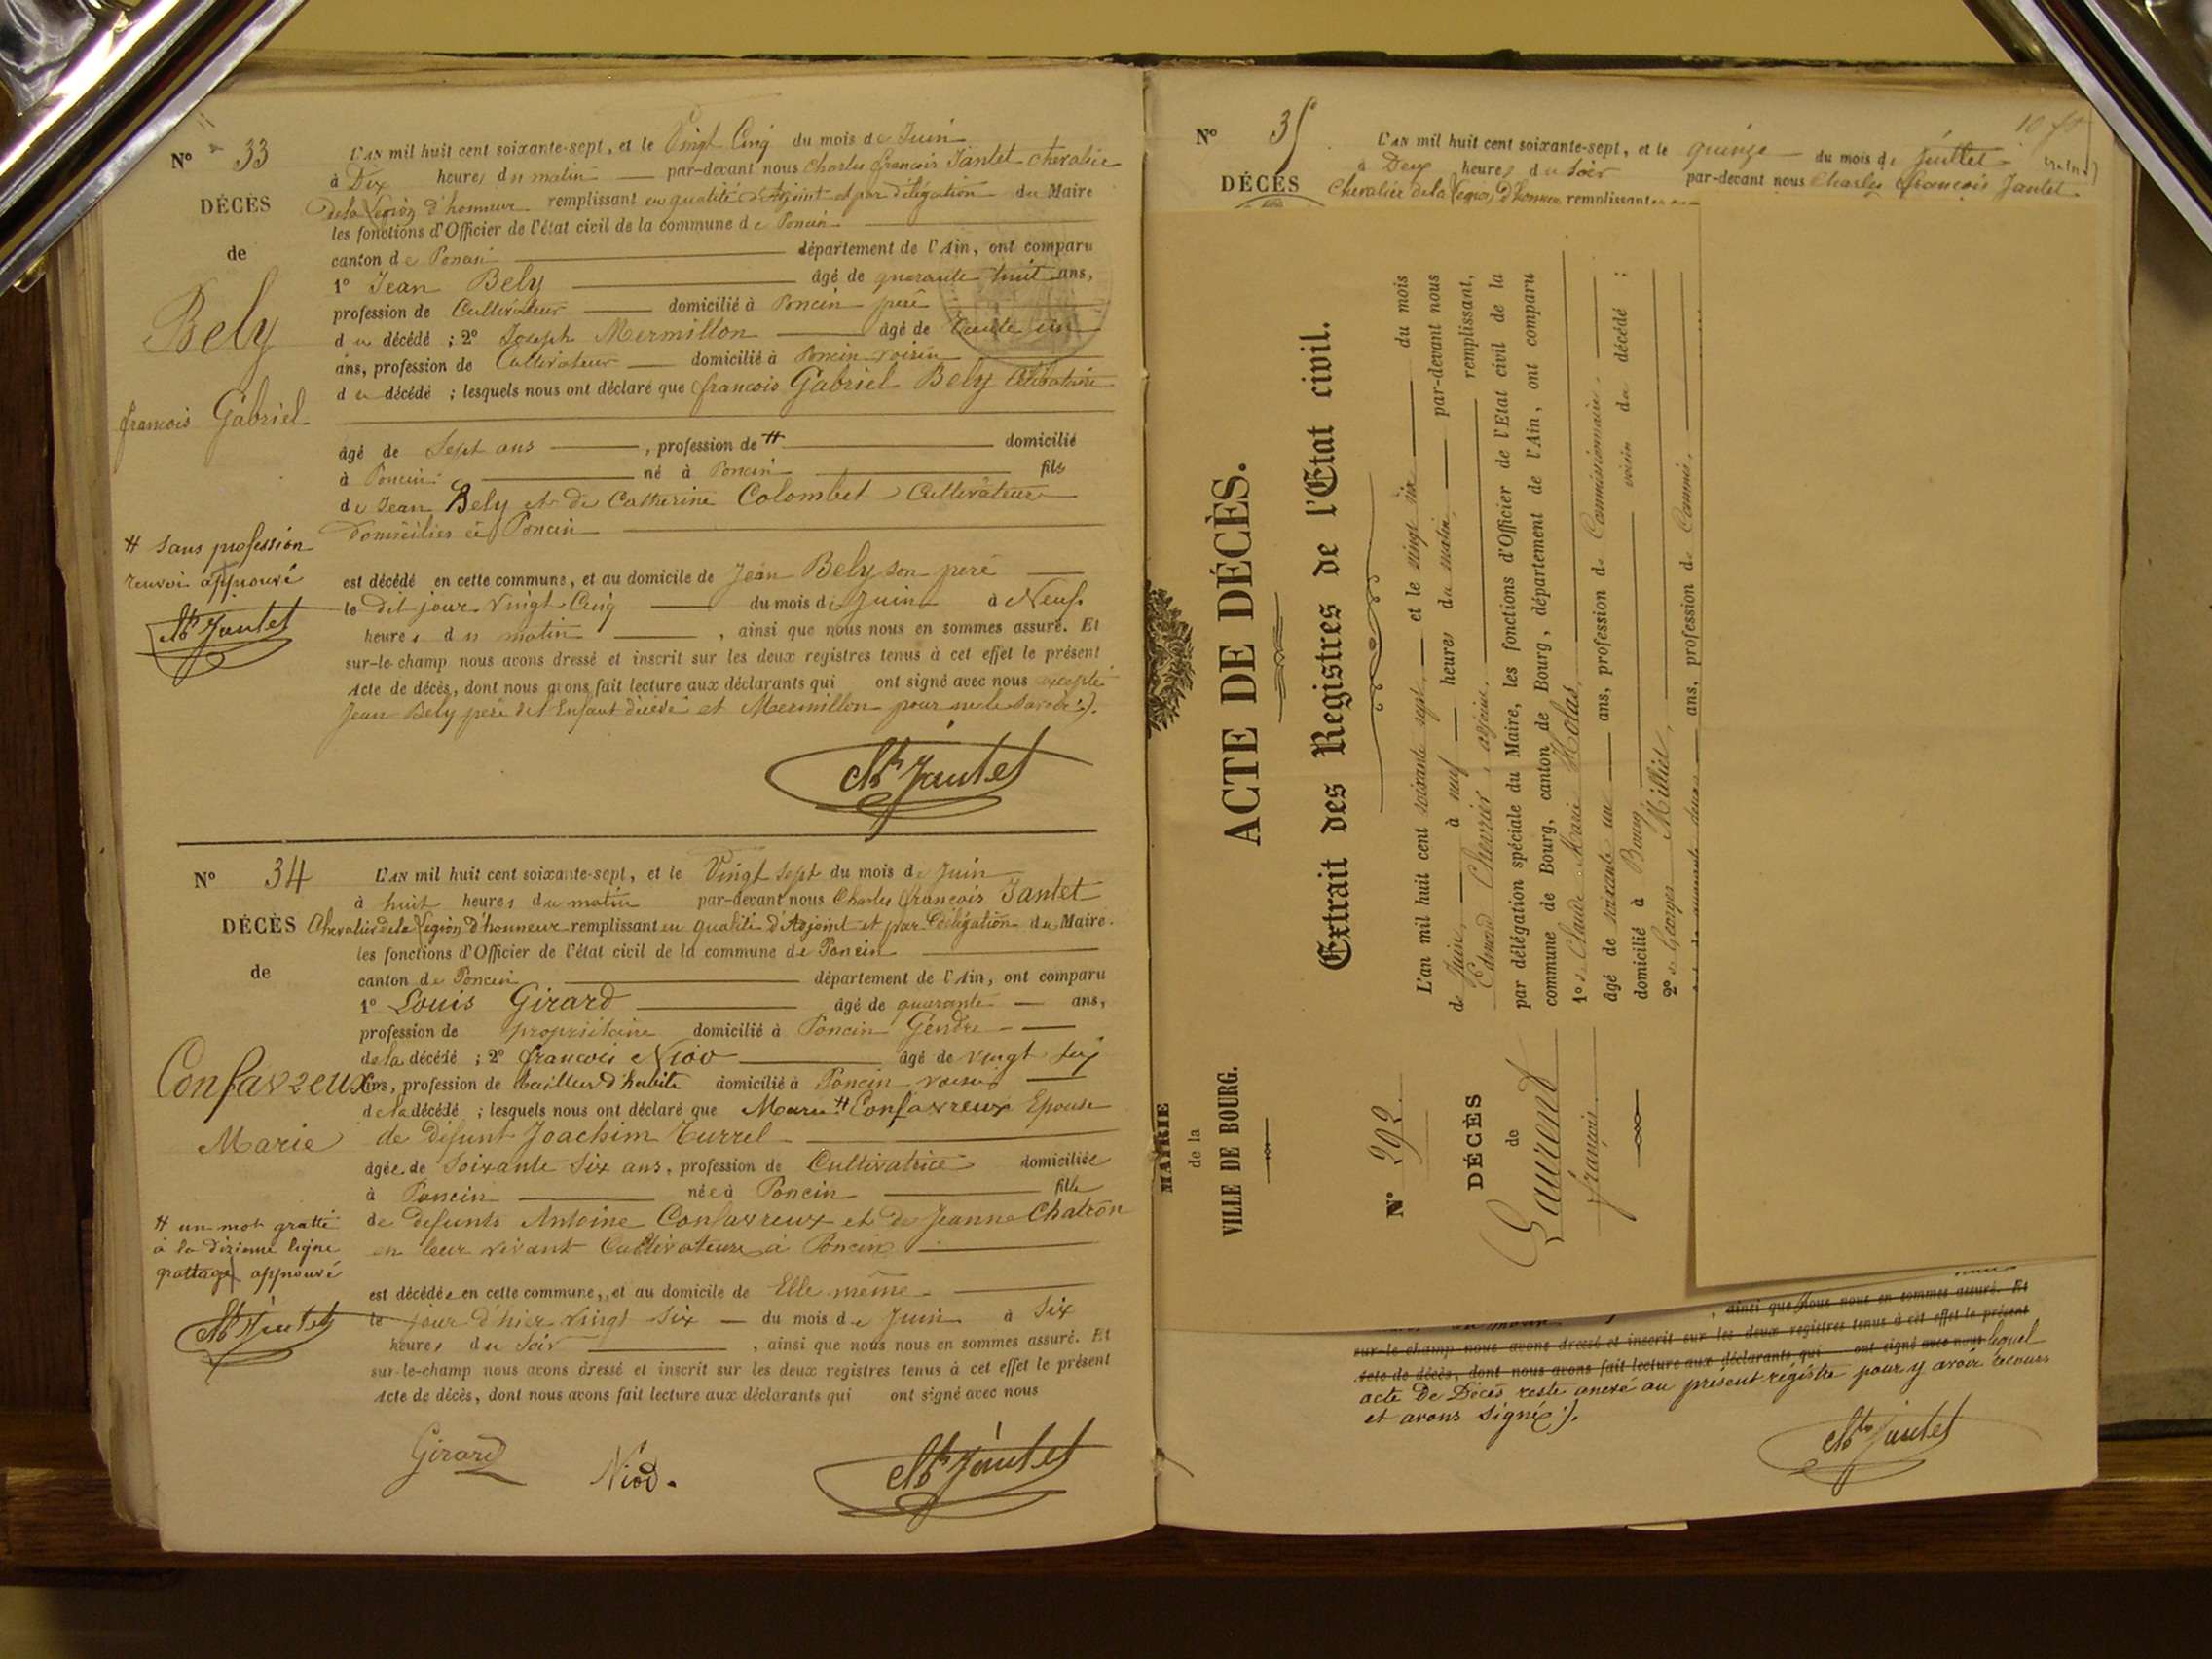 N° 33
DÉCÈS
de
Bely
francois Gabriel
# sans profession
renvoi approuvé
Ch Jantet
L'AN mil huit cent soixante-sept, et le Vingt Cinq du mois de Juin
à Dix heures du matin par-devant nous Charles francois Jantet chevalier
de la Legion d'honneur remplissant en qualité d'Adjoint et par délégation du Maire
les fonctions d'Officier de l'état civil de la commune de Poncin
canton de Poncin département de l'Ain, ont comparu
1° Jean Bely âgé de quarante huit ans,
profession de Cultivateur domicilié à Poncin pere
du décédé ; 2° Joseph Mermillon âgé de trente un
ans, profession de Cultivateur domicilié à Poncin voisin
du décédé ; lesquels nous ont déclaré que francois Gabriel Bely Célibataire
âgé de Sept ans , profession de # domicilié
à Poncin né à Poncin fils
de Jean Bely et de Catherine Colombet Cultivateurs
Domiciliés à Poncin
est décédé en cette commune, et au domicile de Jean Bely son pere
le dit jour Vingt Cinq du mois de Juin à Neuf
heures du matin , ainsi que nous nous en sommes assuré. Et
sur-le-champ nous avons dressé et inscrit sur les deux registres tenus à cet effet le présent
acte de décès, dont nous avons fait lecture aux déclarants qui ont signé avec nous excepté
Jean Bely pere de l'Enfant décédé et Mermillon pour ne le savoir ).
Ch Jantet
N° 34
DÉCÈS
de
Confavreux
Marie
# un mot gratté
à la dixieme ligne
grattage approuvé
Ch Jantet
L'AN mil huit cent soixante-sept, et le Vingt Sept du mois de Juin
à huit heures du matin par-devant nous Charles francois Jantet
Chevalier de la Legion d'honneur remplissant en qualité d'Adjoint et par Délégation du Maire
les fonctions d'Officier de l'état civil de la commune de Poncin
canton de Poncin département de l'Ain, ont comparu
1° Louis Girard âgé de quarante ans,
profession de propriétaire domicilié à Poncin Gendre
de la décédé ; 2° francois Niod âgé de vingt six
ans, profession de tailleur d'habits domicilié à Poncin voisin
de la décédé ; lesquels nous ont déclaré que Marie # Confavreux Epouse
de défunt Joachim Turrel
âgée de Soixante Six ans, profession de Cultivatrice domiciliée
à Poncin née à Poncin fille
de defunts Antoine Confavreux et de Jeanne Chatron
en leur vivant Cultivateurs à Poncin
est décédée en cette commune, et au domicile de Elle même
le jour d'hier Vingt Six du mois de Juin à Six
heures du Soir , ainsi que nous nous en sommes assuré. Et
sur-le-champ nous avons dressé et inscrit sur les deux registres tenus à cet effet le présent
acte de décès, dont nous avons fait lecture aux déclarants qui ont signé avec nous
Girard Niod. Ch Jantet
N° 35
DÉCÈS
L'AN mil huit cent soixante-sept, et le quinze du mois de Juillet
à Deux heures du Soir par-devant nous Charles francois Jantet
Chevalier de la Legion D'honneur remplissant
MAIRIE
de la
VILLE DE BOURG.
ACTE DE DÉCÈS.
Extrait des Registres de l'Etat civil.
N° 292.
DÉCÈS
de
Laurent
françois.
L'an mil huit cent soixante sept, et le vingt six du mois
de Juin, à neuf heures du matin, par-devant nous
Edmond Chevrier, adjoint, remplissant,
par délégation spéciale du Maire, les fonctions d'Officier de l'Etat civil de la
commune de Bourg, canton de Bourg, département de l'Ain, ont comparu
1° Claude Marie Holas,
âgé de soixante un ans, profession de Commissionnaire,
domicilié à Bourg, voisin du décédé ;
2° Georges Milliet,
ans, profession de Commis,
, ainsi que nous nous en sommes assuré. Et
sur-le-champ nous avons dressé et inscrit sur les deux registres tenus à cet effet le présent
acte de décès, dont nous avons fait lecture aux déclarants qui ont signé avec nous lequel
acte De Décès reste anexé au présent régistre pour y avoir recours
et avons signé ).
Ch Jantet